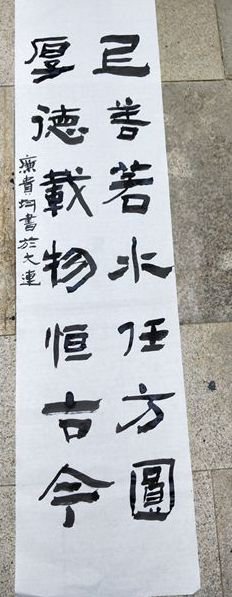 已善若水任方圓
厚德載物恒古今
康貴均書於大連